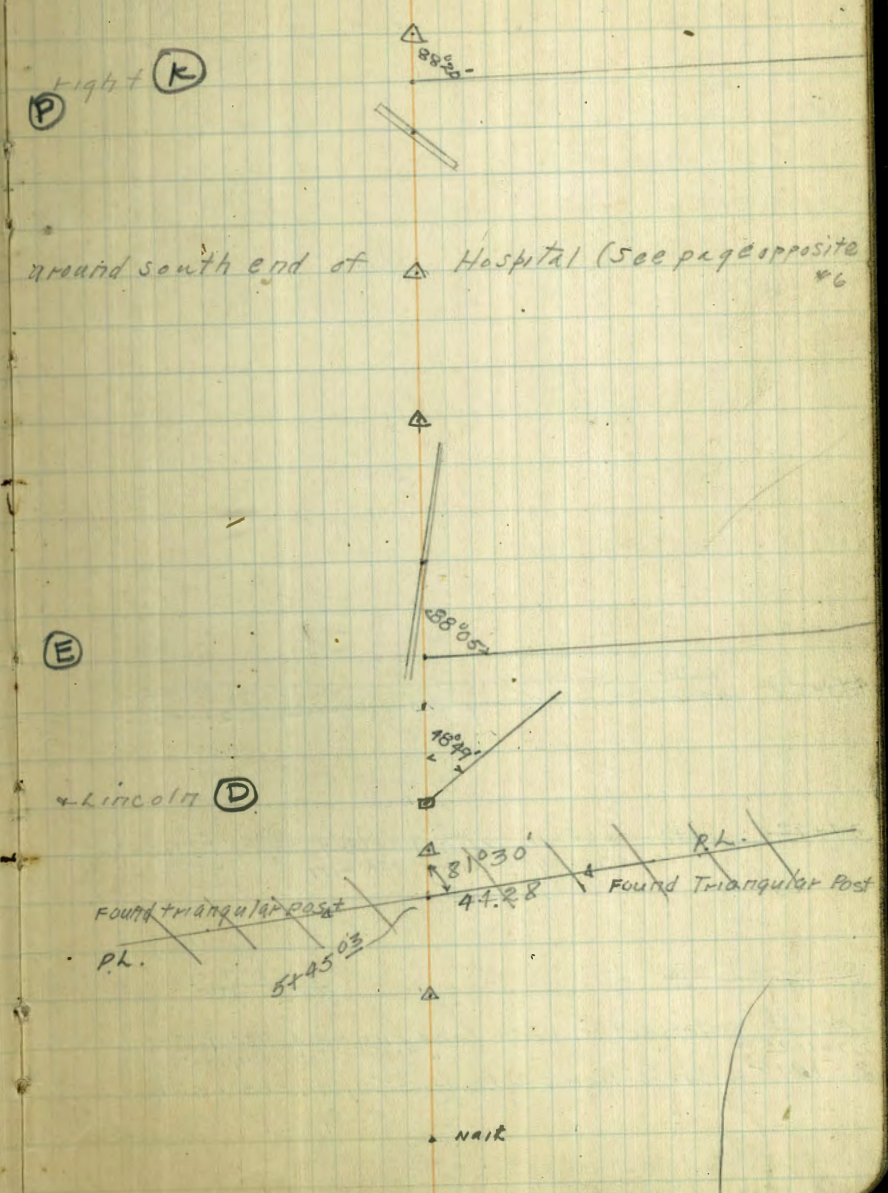 88°20'
right K
P
around south end of Hospital (See page opposite
#6
88°05'
E
18°49'
Lincoln D
P.L.
81°30'
44.28
Found Triangular Post
Found triangular post
P.L.
5x45 03
Nail